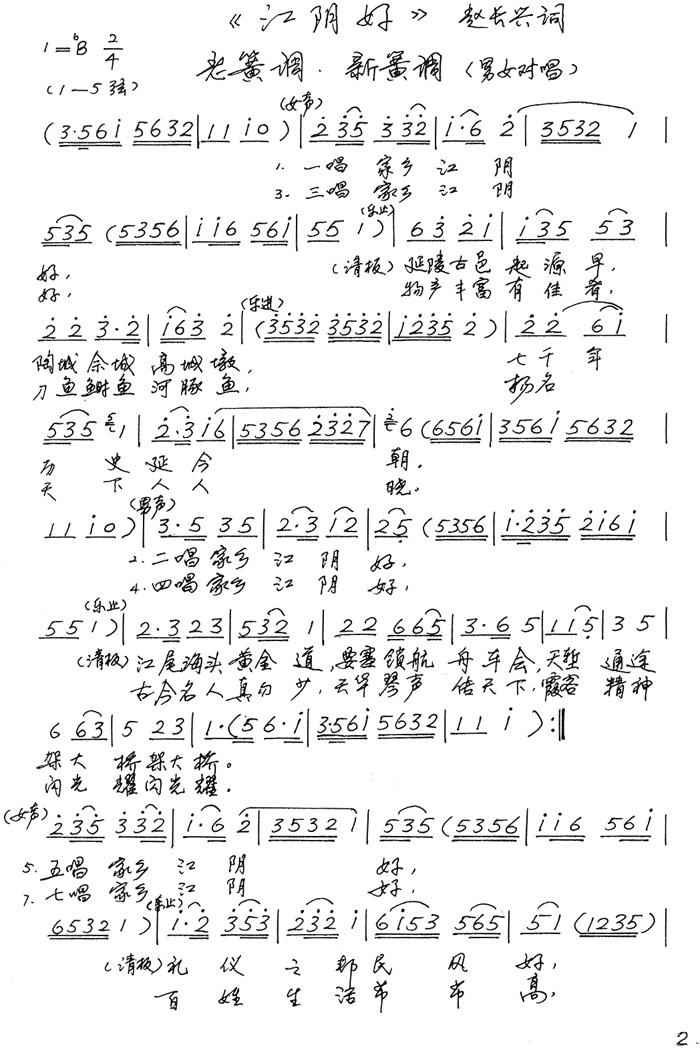 《江阴好》 赵长兴词
1=♭B 2/4
老簧调·新簧调（男女对唱）
（1—5弦）
（女声）
(3·56i 5632|11 i0)|2 35 3 32|i·6 2|3532 1|
1. 一唱 家乡 江 阴
3. 三唱 家乡 江 阴
（乐止）
535 (5356|ii6 56i|55 1)|63 2i|i35 53|
好, （清板）延陵古邑 起源早,
好, 物产丰富有佳肴,
（乐进）
22 3·2|i63 2|(3532 3532|i235 2)|22 6i|
陶城佘城 高城墩, 七千年
刀鱼鲥鱼 河豚鱼, 扬名
535 1|2·3 i6|5356 2327|6 (656i|356i 5632|
历 史延今 朝.
天 下人人 晓.
（男声）
11 i0)|3·5 35|2·3 12|25 (5356|i·235 2i6i|
2. 二唱家乡 江 阴 好,
4. 四唱家乡 江 阴 好,
（乐止）
55 1)|2·3 23|532 1|22 665|3·6 5|115|3 5|
（清板）江尾海头黄金 道,要塞锁航 舟车会,天堑 通途
古今名人真勿少,天华琴声 传天下,霞客 精神
6 63|5 23|1·(56·i|3·56i 5632|11 i):‖
架大 桥架大桥。
闪光 耀闪光耀.
（女声）
235 332|i·6 2|3532 1|535 (5356|ii6 56i|
5. 五唱 家乡 江 阴 好,
7. 七唱 家乡 江 阴 好.
（乐止）
6532 1)|i·2 353|232 i|6i53 565|51 (1235)|
（清板）礼 仪 之邦民 风 好,
百 姓 生活节 节 高,
2.